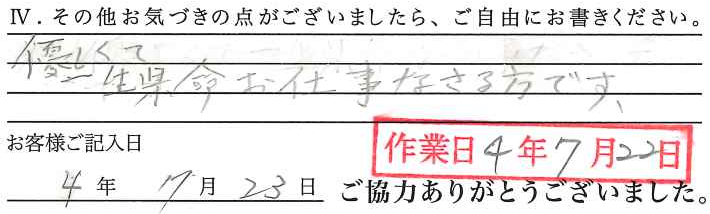 Ⅳ．その他お気づきの点がございましたら、ご自由にお書きください。
優しくて
生県命お仕事なさる方です、
お客様ご記入日
作業日 4年7月22日
4年 7月 23日 ご協力ありがとうございました。